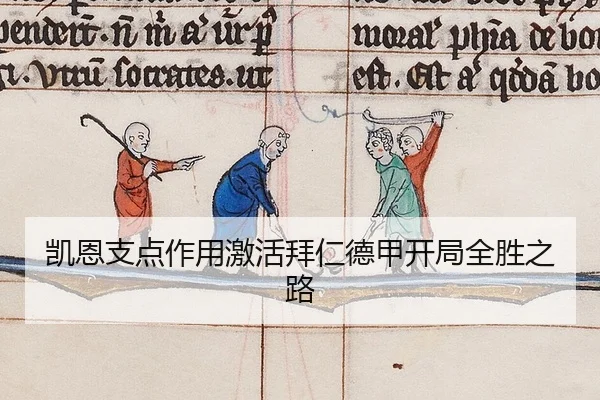 pendeit. n̄ m̄ a᷒ ūr p̄p̄
moral᷒ ph̄ia de bon
gi. Vtrū socrates. ut
est. Est a᷒ q̄dā bo
凯恩支点作用激活拜仁德甲开局全胜之
路